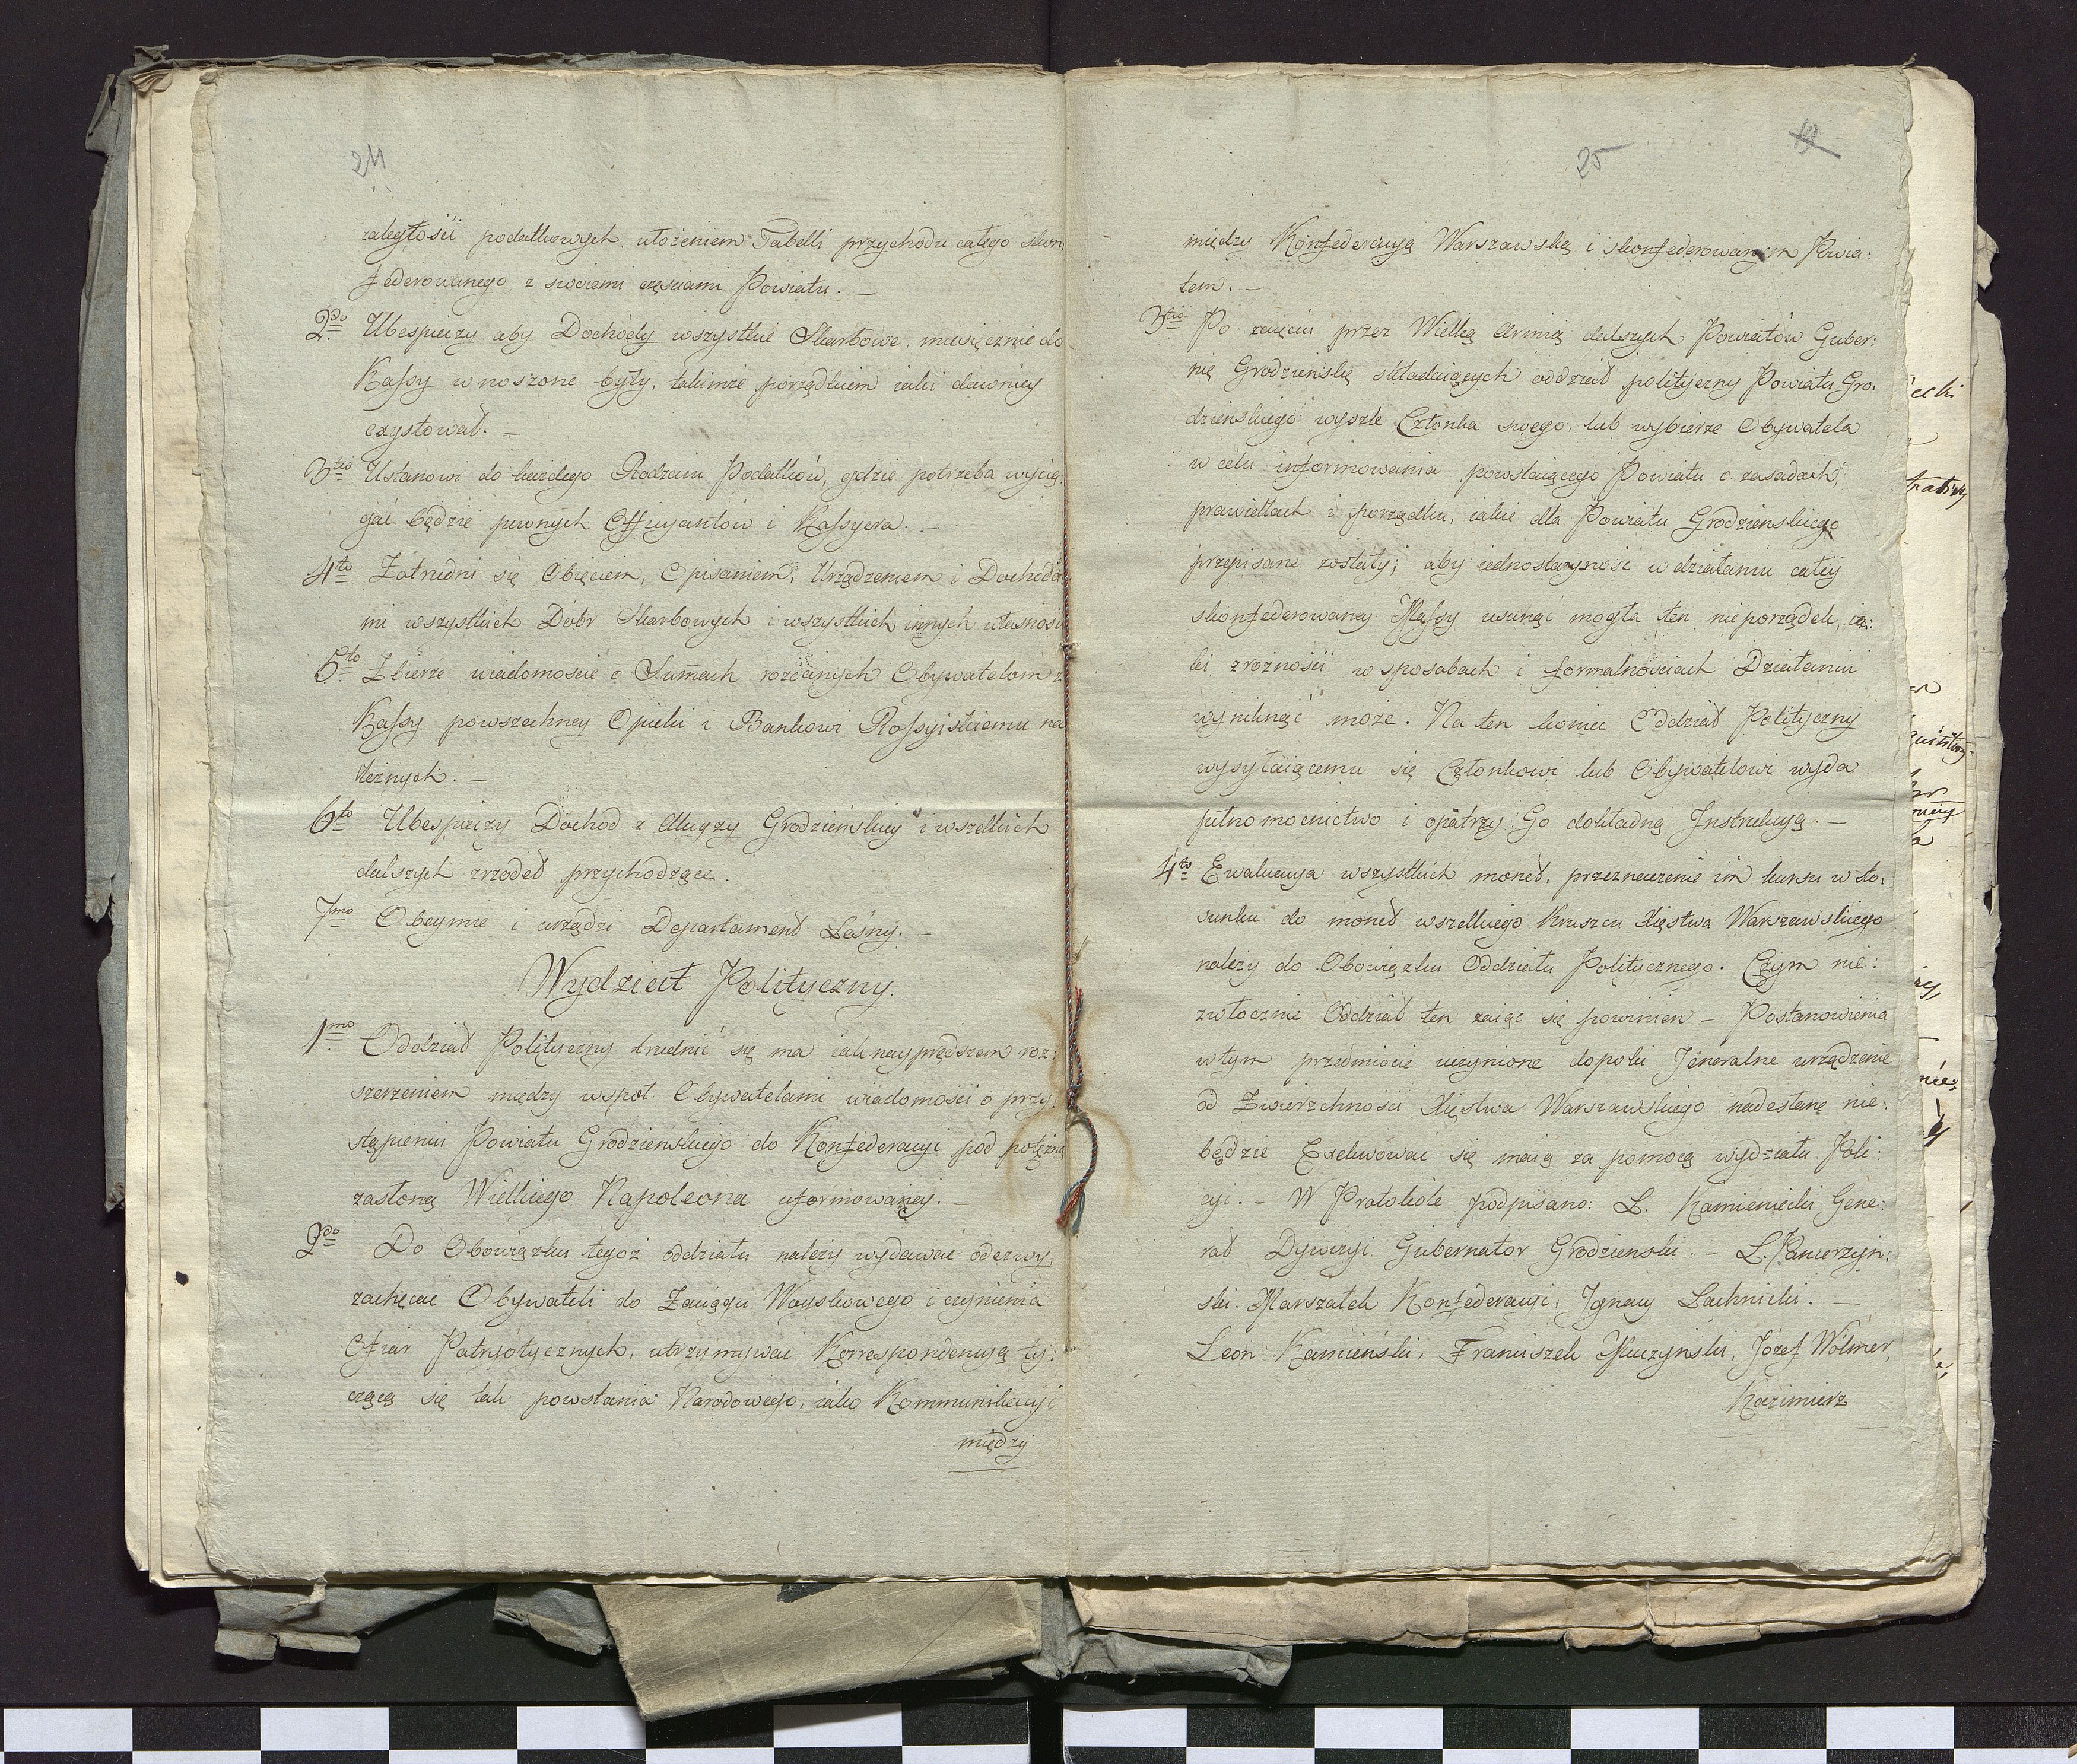 24
zaległości podatkowych, ułożeniem Tabelli przychodu całego skon:
federowanego z swoiemi częściami Powiatu. —
2do Ubespieczy aby Dochody wszystkie Skarbowe, miesięcznie do
Kassy wnoszone były, takimże porządkiem iaki dawniey
exystował. —
3tio Ustanowi do każdego Rodzaiu Podatków, gdzie potrzeba wycią
gać będzie pewnych Officyantów i Kassyera. —
4to Zatrudni się Obięciem, Opisaniem, Urządzeniem i Dochoda
mi wszystkich Dóbr Skarbowych i wszystkich innych własności
5to Zbierze wiadomoście o Summach rozdanych Obywatelom z
Kassy powszechney Opieki i Bankowi Rossyiskiemu na
leżnych. —
6to Ubespieczy Dochod z Grodzieńskiey i wszelkich
dalszych zrzodeł przychodzące.
7mo Obeymie i urządzi Departament Leśny. —
Wydział Polityczny.
1mo Oddział Polityczny trudnić się ma iak nayprędszem roz:
szerzeniem między wspoł. Obywatelami wiadomości o przy:
stąpieniu Powiatu Grodzieńskiego do Konfederacyi pod potężną
zasłoną Wielkiego Napoleona uformowaney. —
2do Do Obowiązku tegoż oddziału należy wydawać odezwy,
zachęcać Obywateli do Zaciągu Woyskowego i czynienia
Ofiar Patryotycznych, utrzymywać Korrespondencyą ty:
czącą się tak powstania Narodowego, iako Kommunikacyi
między
25
17
między Konfederacyą Warszawską i skonfederowanym Powia:
tem. —
3tio Po zaięciu przez Wielką Armią dalszych Powiatów Guber:
nią Grodzieńską składaiących oddział polityczny Powiatu Gro:
dzieńskiego wyszle Członka swego, lub wybierze Obywatela
w celu informowania powstaiącego Powiatu o zasadach,
prawidłach i porządku, iakie dla Powiatu Grodzieńskiego
przepisane zostały; aby iednostayność w działaniu całey
skonfederowaney Massy usunąć mogła ten nieporządek, ia:
ki zrożności w sposobach i formalnościach Działania
wyniknąć może. Na ten koniec Oddział Polityczny
wysyłaiącemu się Członkowi lub Obywatelowi wyda
pełnomocnictwo i opatrzy Go dokładną Instrukcyą. —
4to Ewaluacya wszystkich monet, przeznaczenie im kursu w sto:
sunku do monet wszelkiego Kruszcu Xięstwa Warszawskiego
należy do Obowiązku Oddziału Politycznego. Czym nie:
zwłocznie Oddział ten zaiąć się powinien — Postanowienia
w tym przedmiocie uczynione dopoki Jeneralne urządzenie
od Zwierzchności Xięstwa Warszawskiego nadesłane nie:
będzie Exekwować się maią za pomocą wydziału Poli:
cyi. — W Protokóle podpisano: L. Kamieniecki Gene:
rał Dywizyi Gubernator Grodzieński. — L. Pancerzyń:
ski. Marszałek Konfederacyi, Ignacy Lachnicki. —
Leon Kamieński, Franciszek Kuczyński, Józef Wólmer,
Kazimierz